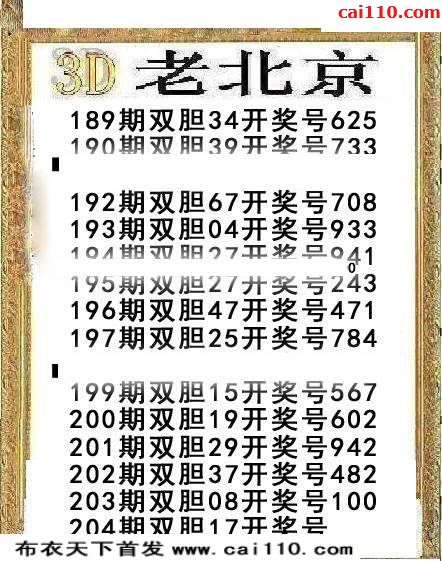 cai110.com
3D 老北京
189期双胆34开奖号625
190期双胆39开奖号733
192期双胆67开奖号708
193期双胆04开奖号933
194期双胆27开奖号941
195期双胆27开奖号243
196期双胆47开奖号471
197期双胆25开奖号784
199期双胆15开奖号567
200期双胆19开奖号602
201期双胆29开奖号942
202期双胆37开奖号482
203期双胆08开奖号100
204期双胆17开奖号
布衣天下首发 www.cai110.com